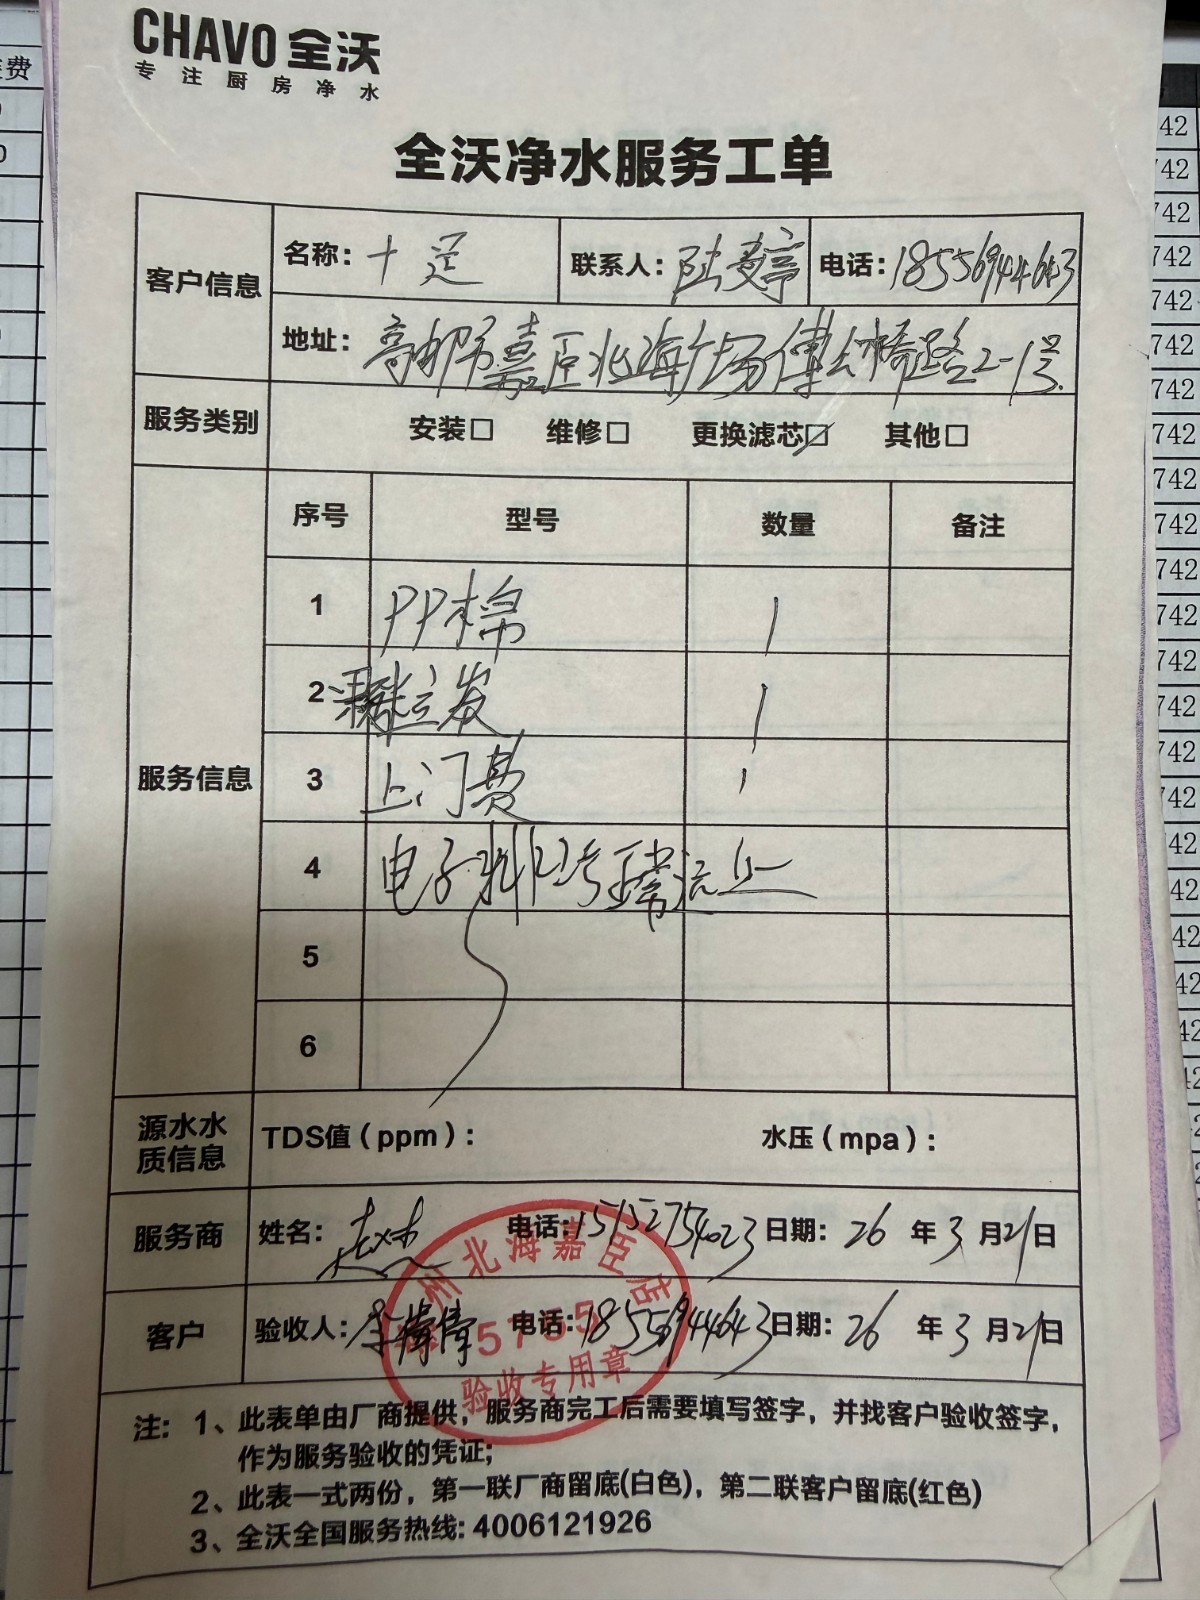 CHAVO 全沃
专注厨房净水
全沃净水服务工单
客户信息 名称：十足 联系人：陆麦亭 电话：18556944643
地址：高邮市嘉臣北海广场傅公桥路2-1号
服务类别 安装□ 维修□ 更换滤芯☑ 其他□
服务信息 序号 型号 数量 备注
1 PP棉 1
2 颗粒炭 1
3 上门费 1
4 电子秤
5
6
源水水质信息 TDS值（ppm）： 水压（mpa）：
服务商 姓名： 电话：15152754023 日期：26年3月21日
客户 验收人： 电话：18556944643 日期：26年3月21日
州北海嘉臣店
验收专用章
注：1、此表单由厂商提供，服务商完工后需要填写签字，并找客户验收签字，
作为服务验收的凭证；
2、此表一式两份，第一联厂商留底(白色)，第二联客户留底(红色)
3、全沃全国服务热线：4006121926